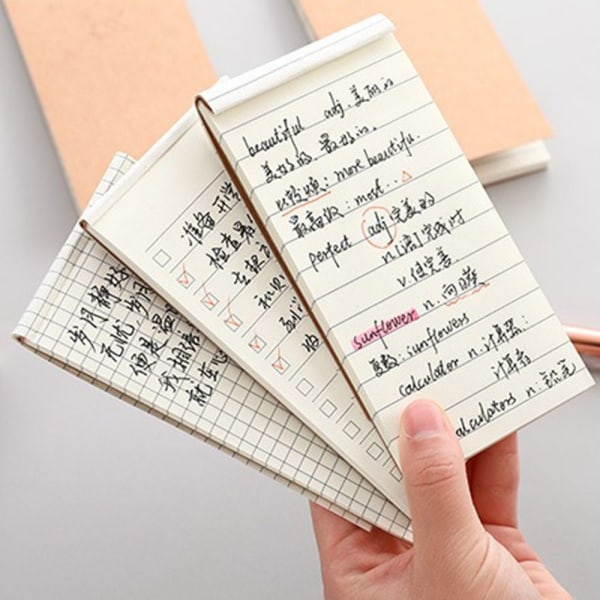 beautiful adj. 美丽的
美好的. 最好的.
比较级: more beautiful.
最高级: most..△
perfect adj 完美的
n.[语]完成时
v.使完善
sunflower n. 向日葵
复数: sunflowers
calculator n. 计算器:
计算者
calculators n:
准备开学
检查
岁月静好
无忧 岁月
便是最
我拥
就在